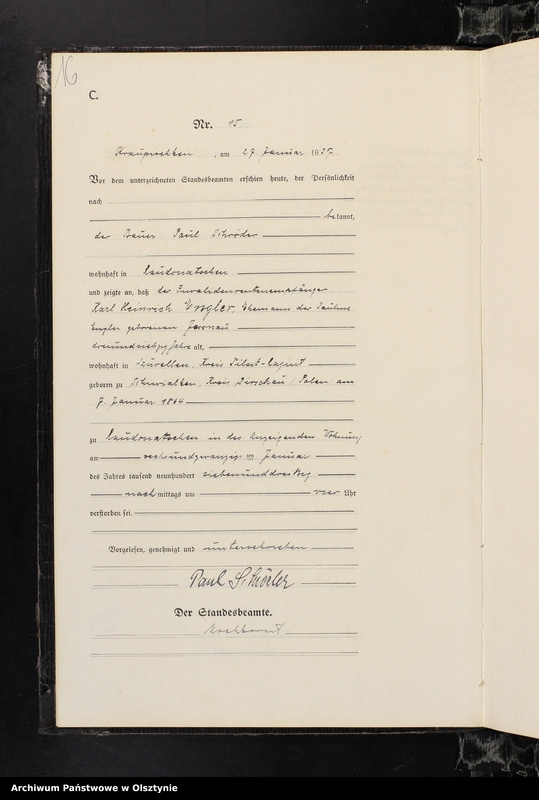 16
C.
Nr. 15
Kraupischken, am 27. Januar 1937
Vor dem unterzeichneten Standesbeamten erschien heute, der Persönlichkeit
nach
bekannt,
der Bauer Paul Schröder
wohnhaft in
und zeigte an, daß der Invalidenrentenempfänger
Karl Heinrich Engler, Ehemann der Pauline
Engler geborenen
dreiundsiebzig Jahre alt,
wohnhaft in Kreis Tilsit-Ragnit
geboren zu Kreis Dirschau / Polen am
7. Januar 1864
zu in des Anzeigenden Wohnung
am sechsundzwanzigs ten Januar
des Jahres tausend neunhundert siebenunddreißig
nach mittags um vier Uhr
verstorben sei.
Vorgelesen, genehmigt und unterschrieben
Paul Schröder
Der Standesbeamte.
Archiwum Państwowe w Olsztynie